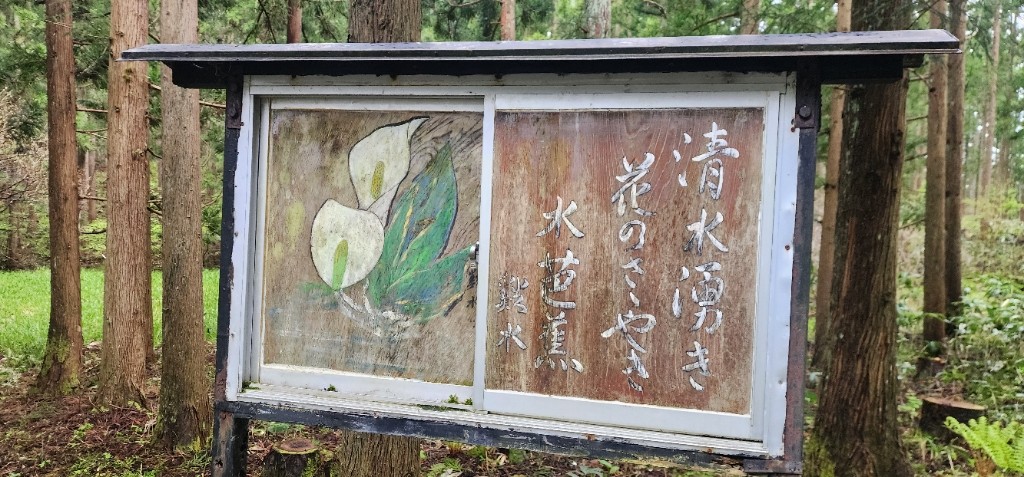 清水湧き
花のさゝやき
水芭蕉